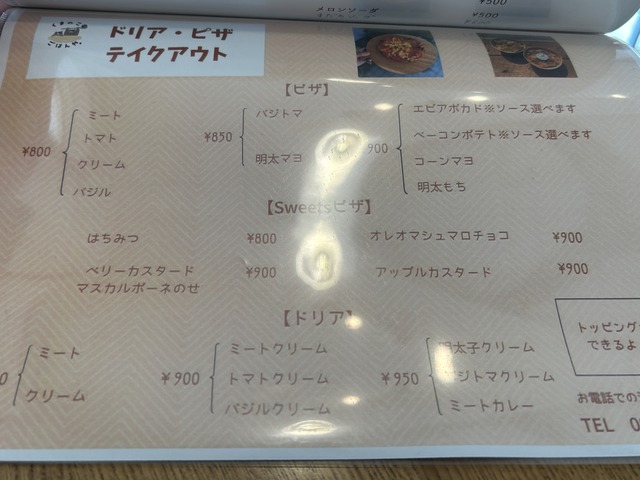 メロンソーダ
¥500
¥500
しまねこ
ごはんや。
ドリア・ピザ
テイクアウト
【ピザ】
¥800
ミート
トマト
クリーム
バジル
¥850
バジトマ
明太マヨ
900
エビアボカド※ソース選べます
ベーコンポテト※ソース選べます
コーンマヨ
明太もち
【Sweetsピザ】
はちみつ ¥800
ベリーカスタード ¥900
マスカルポーネのせ
オレオマシュマロチョコ ¥900
アップルカスタード ¥900
【ドリア】
0
ミート
クリーム
¥900
ミートクリーム
トマトクリーム
バジルクリーム
¥950
明太子クリーム
ジトマクリーム
ミートカレー
トッピング
できるよ
お電話での
TEL 0